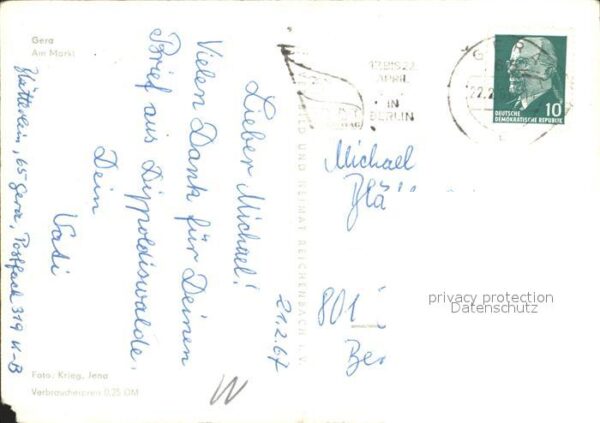 Gera
Am Markt
Lieber Michael!
Vielen Dank für Deinen
Brief aus Dippoldiswalde.
Dein
Vati
21.2.67
65 Gera, Postfach 319 K-B
Foto: Krieg, Jena
Verbraucherpreis 0,25 DM
BILD UND HEIMAT REICHENBACH I. V.
17. BIS 22.
APRIL
IN
BERLIN
DEUTSCHE
DEMOKRATISCHE REPUBLIK
10
Michael
Blä
801
Ber
privacy protection
Datenschutz